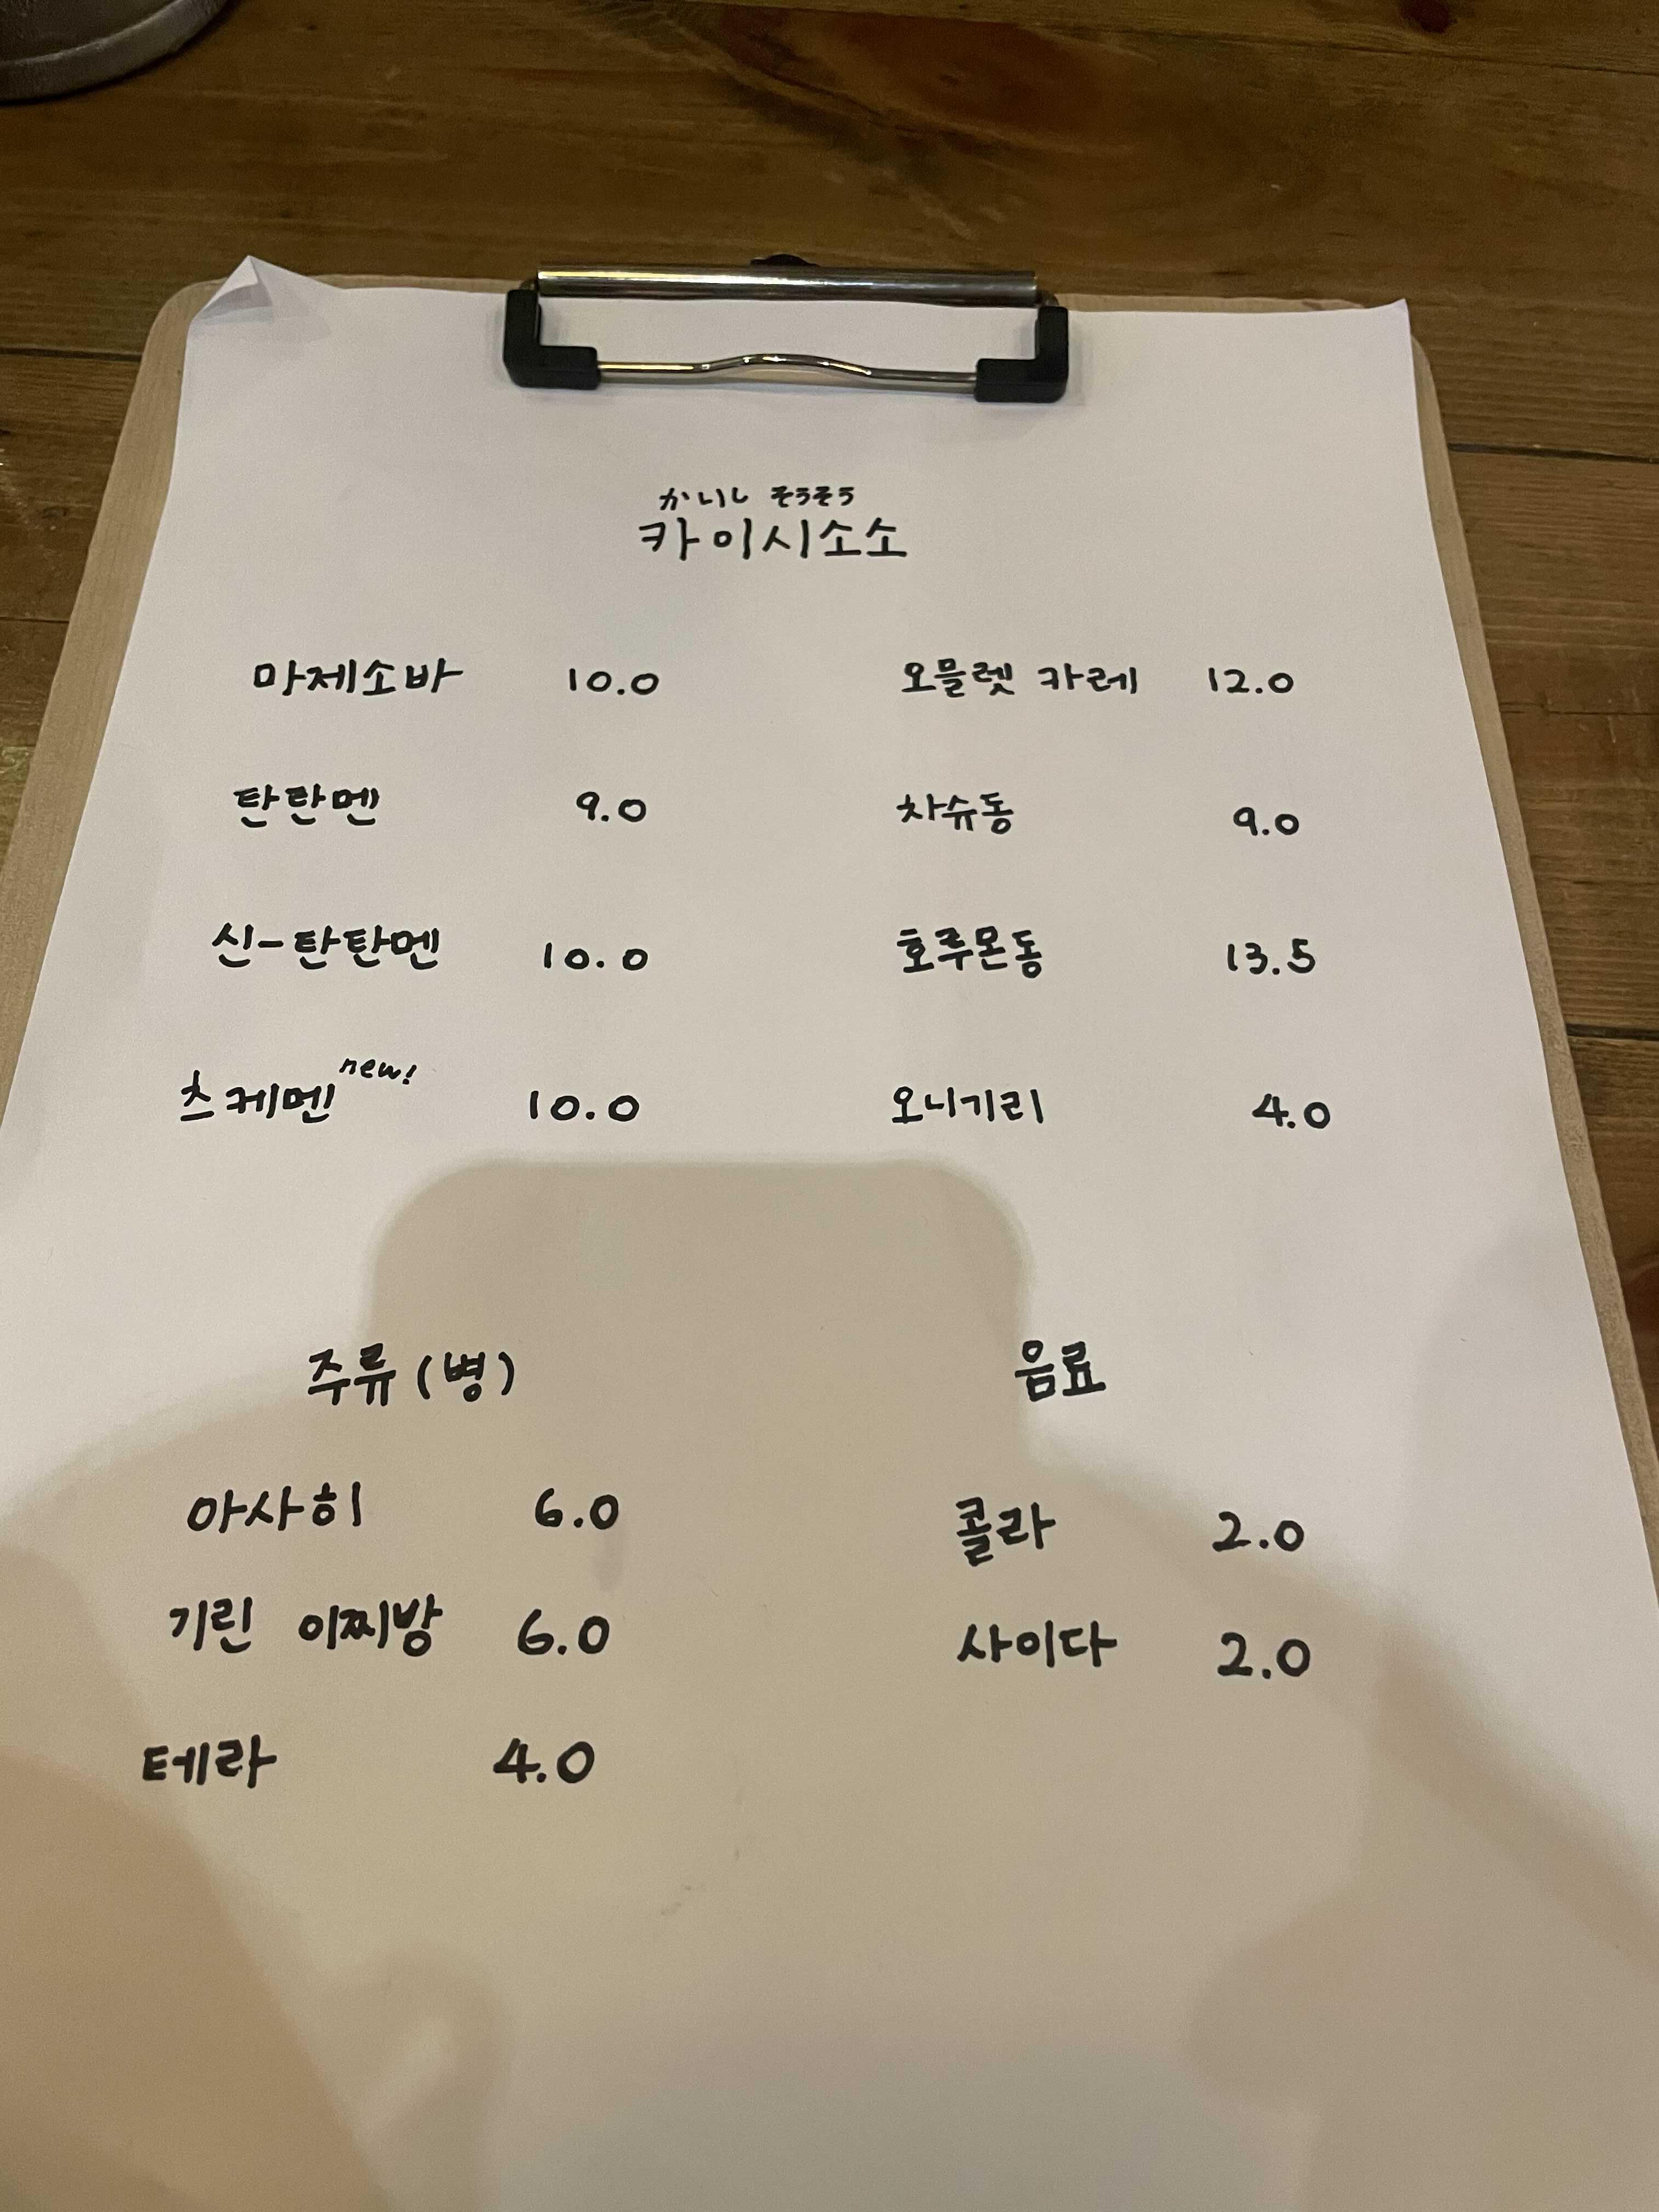 かいし そうそう
카이시소소
마제소바 10.0 오믈렛 카레 12.0
탄탄멘 9.0 차슈동 9.0
신-탄탄멘 10.0 호루몬동 13.5
츠케멘 new! 10.0 오니기리 4.0
주류(병) 음료
아사히 6.0 콜라 2.0
기린 이찌방 6.0 사이다 2.0
테라 4.0